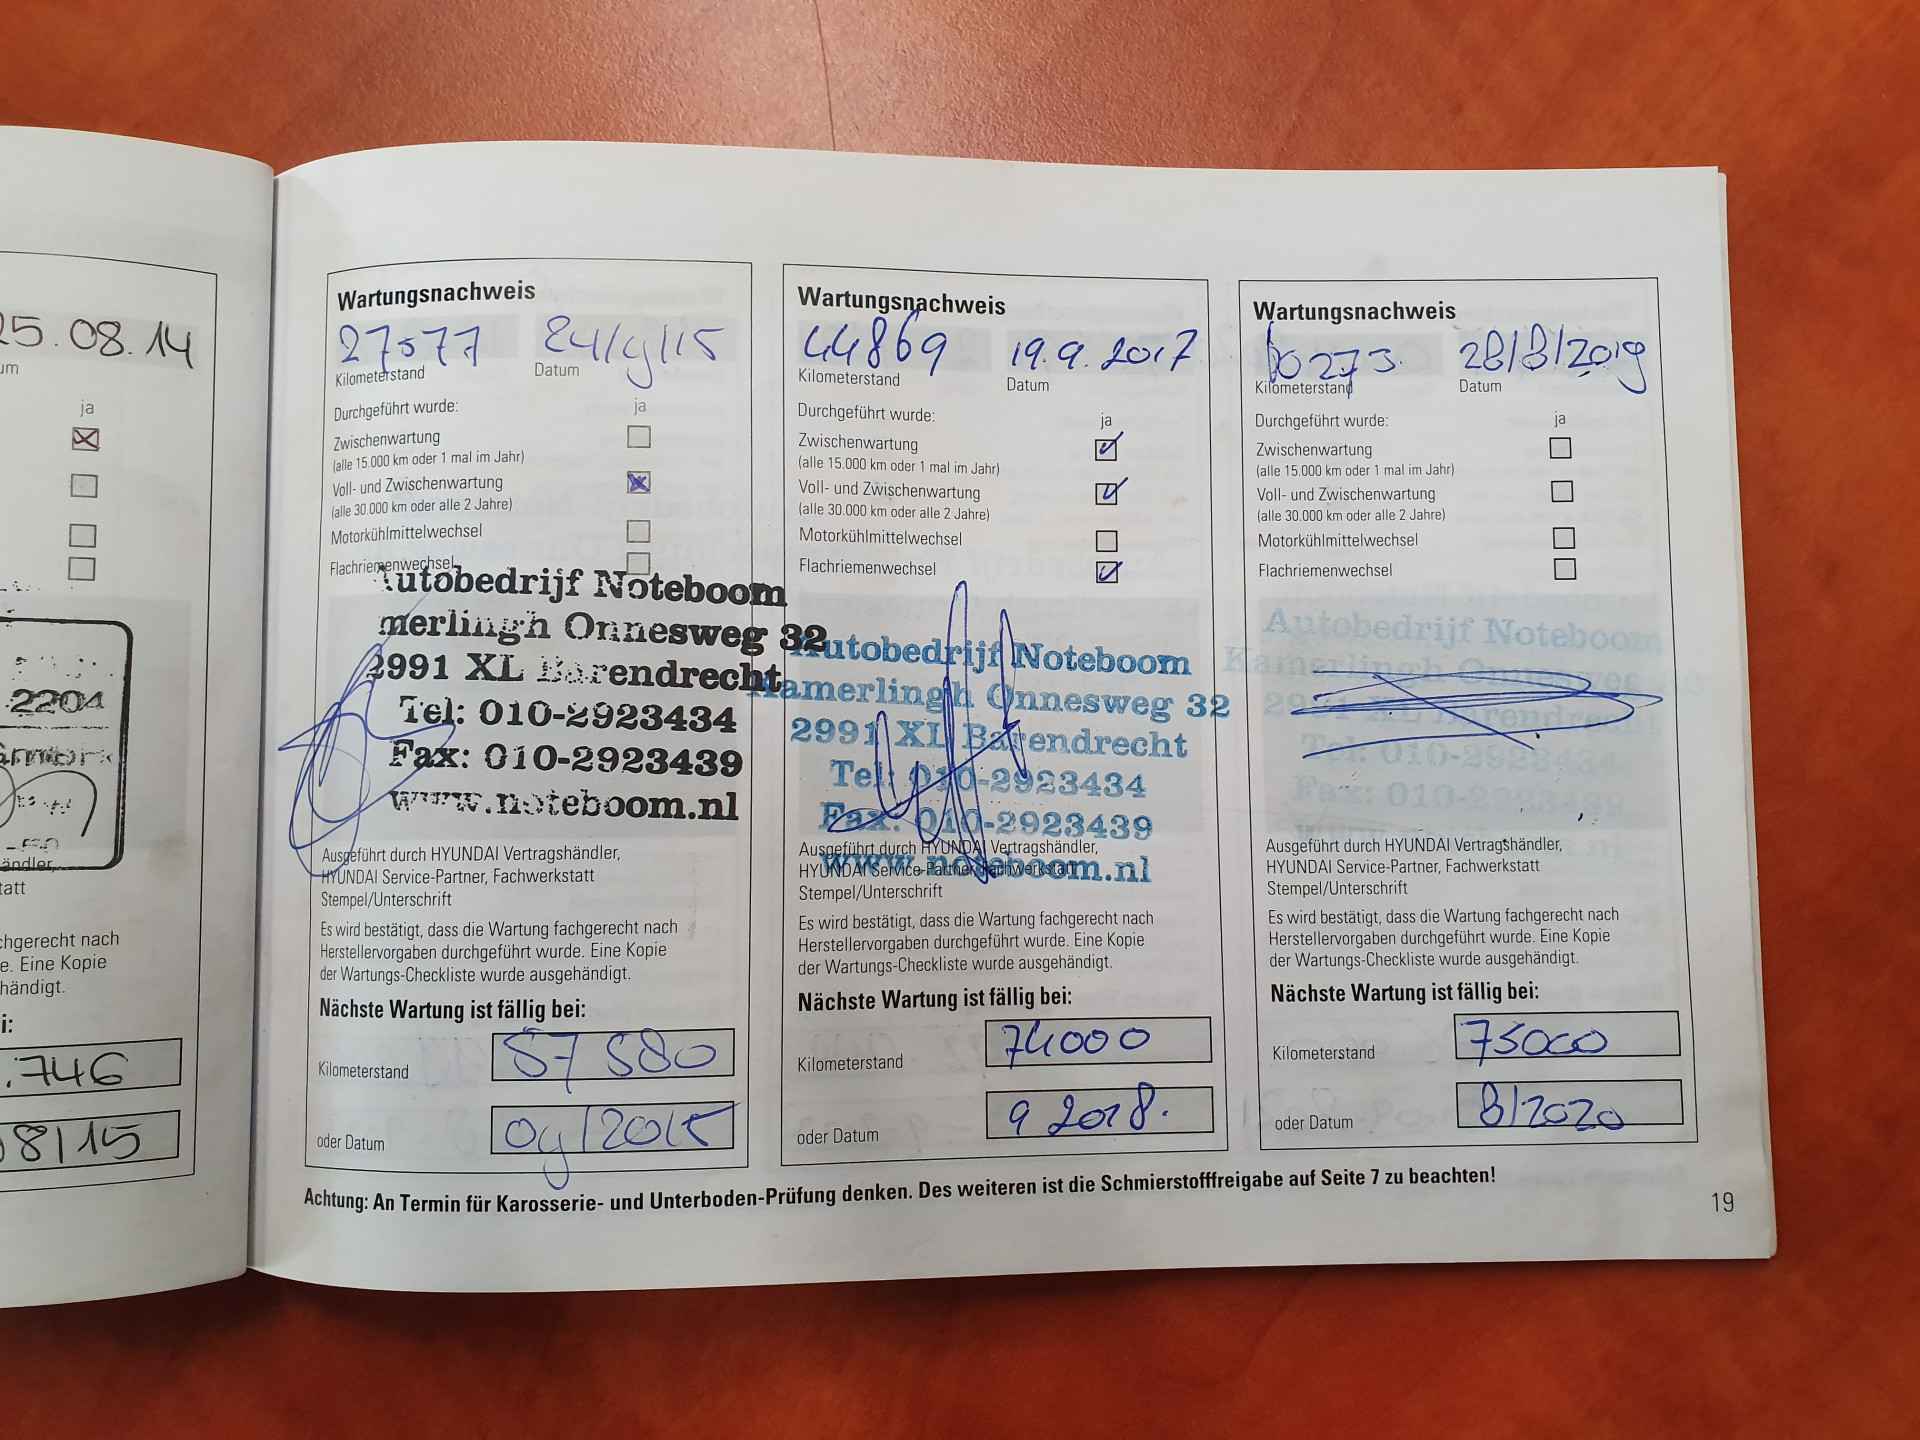 25.08.14
um
ja
2204
ändler,
tatt
chgerecht nach
e. Eine Kopie
händigt.
i:
.746
08/15
Wartungsnachweis
27577 24/9/15
Kilometerstand Datum
Durchgeführt wurde: ja
Zwischenwartung
(alle 15.000 km oder 1 mal im Jahr)
Voll- und Zwischenwartung
(alle 30.000 km oder alle 2 Jahre)
Motorkühlmittelwechsel
Flachriemenwechsel
Autobedrijf Noteboom
merlingh Onnesweg 32
2991 XL Barendrecht
Tel: 010-2923434
Fax: 010-2923439
www.noteboom.nl
Ausgeführt durch HYUNDAI Vertragshändler,
HYUNDAI Service-Partner, Fachwerkstatt
Stempel/Unterschrift
Es wird bestätigt, dass die Wartung fachgerecht nach
Herstellervorgaben durchgeführt wurde. Eine Kopie
der Wartungs-Checkliste wurde ausgehändigt.
Nächste Wartung ist fällig bei:
Kilometerstand 57 580
oder Datum 09/2015
Wartungsnachweis
44869 19.9.2017
Kilometerstand Datum
Durchgeführt wurde: ja
Zwischenwartung
(alle 15.000 km oder 1 mal im Jahr)
Voll- und Zwischenwartung
(alle 30.000 km oder alle 2 Jahre)
Motorkühlmittelwechsel
Flachriemenwechsel
Autobedrijf Noteboom
Kamerlingh Onnesweg 32
2991 XL Barendrecht
Tel: 010-2923434
Fax: 010-2923439
www.noteboom.nl
Ausgeführt durch HYUNDAI Vertragshändler,
HYUNDAI Service-Partner, Fachwerkstatt
Stempel/Unterschrift
Es wird bestätigt, dass die Wartung fachgerecht nach
Herstellervorgaben durchgeführt wurde. Eine Kopie
der Wartungs-Checkliste wurde ausgehändigt.
Nächste Wartung ist fällig bei:
Kilometerstand 74000
oder Datum 9 2018.
Wartungsnachweis
60273. 28/8/2019
Kilometerstand Datum
Durchgeführt wurde: ja
Zwischenwartung
(alle 15.000 km oder 1 mal im Jahr)
Voll- und Zwischenwartung
(alle 30.000 km oder alle 2 Jahre)
Motorkühlmittelwechsel
Flachriemenwechsel
Autobedrijf Noteboom
Kamerlingh Onnesweg 32
2991 XL Barendrecht
Tel: 010-2923434
Fax: 010-2923439
Ausgeführt durch HYUNDAI Vertragshändler,
HYUNDAI Service-Partner, Fachwerkstatt
Stempel/Unterschrift
Es wird bestätigt, dass die Wartung fachgerecht nach
Herstellervorgaben durchgeführt wurde. Eine Kopie
der Wartungs-Checkliste wurde ausgehändigt.
Nächste Wartung ist fällig bei:
Kilometerstand 75000
oder Datum 8/2020
Achtung: An Termin für Karosserie- und Unterboden-Prüfung denken. Des weiteren ist die Schmierstofffreigabe auf Seite 7 zu beachten!
19